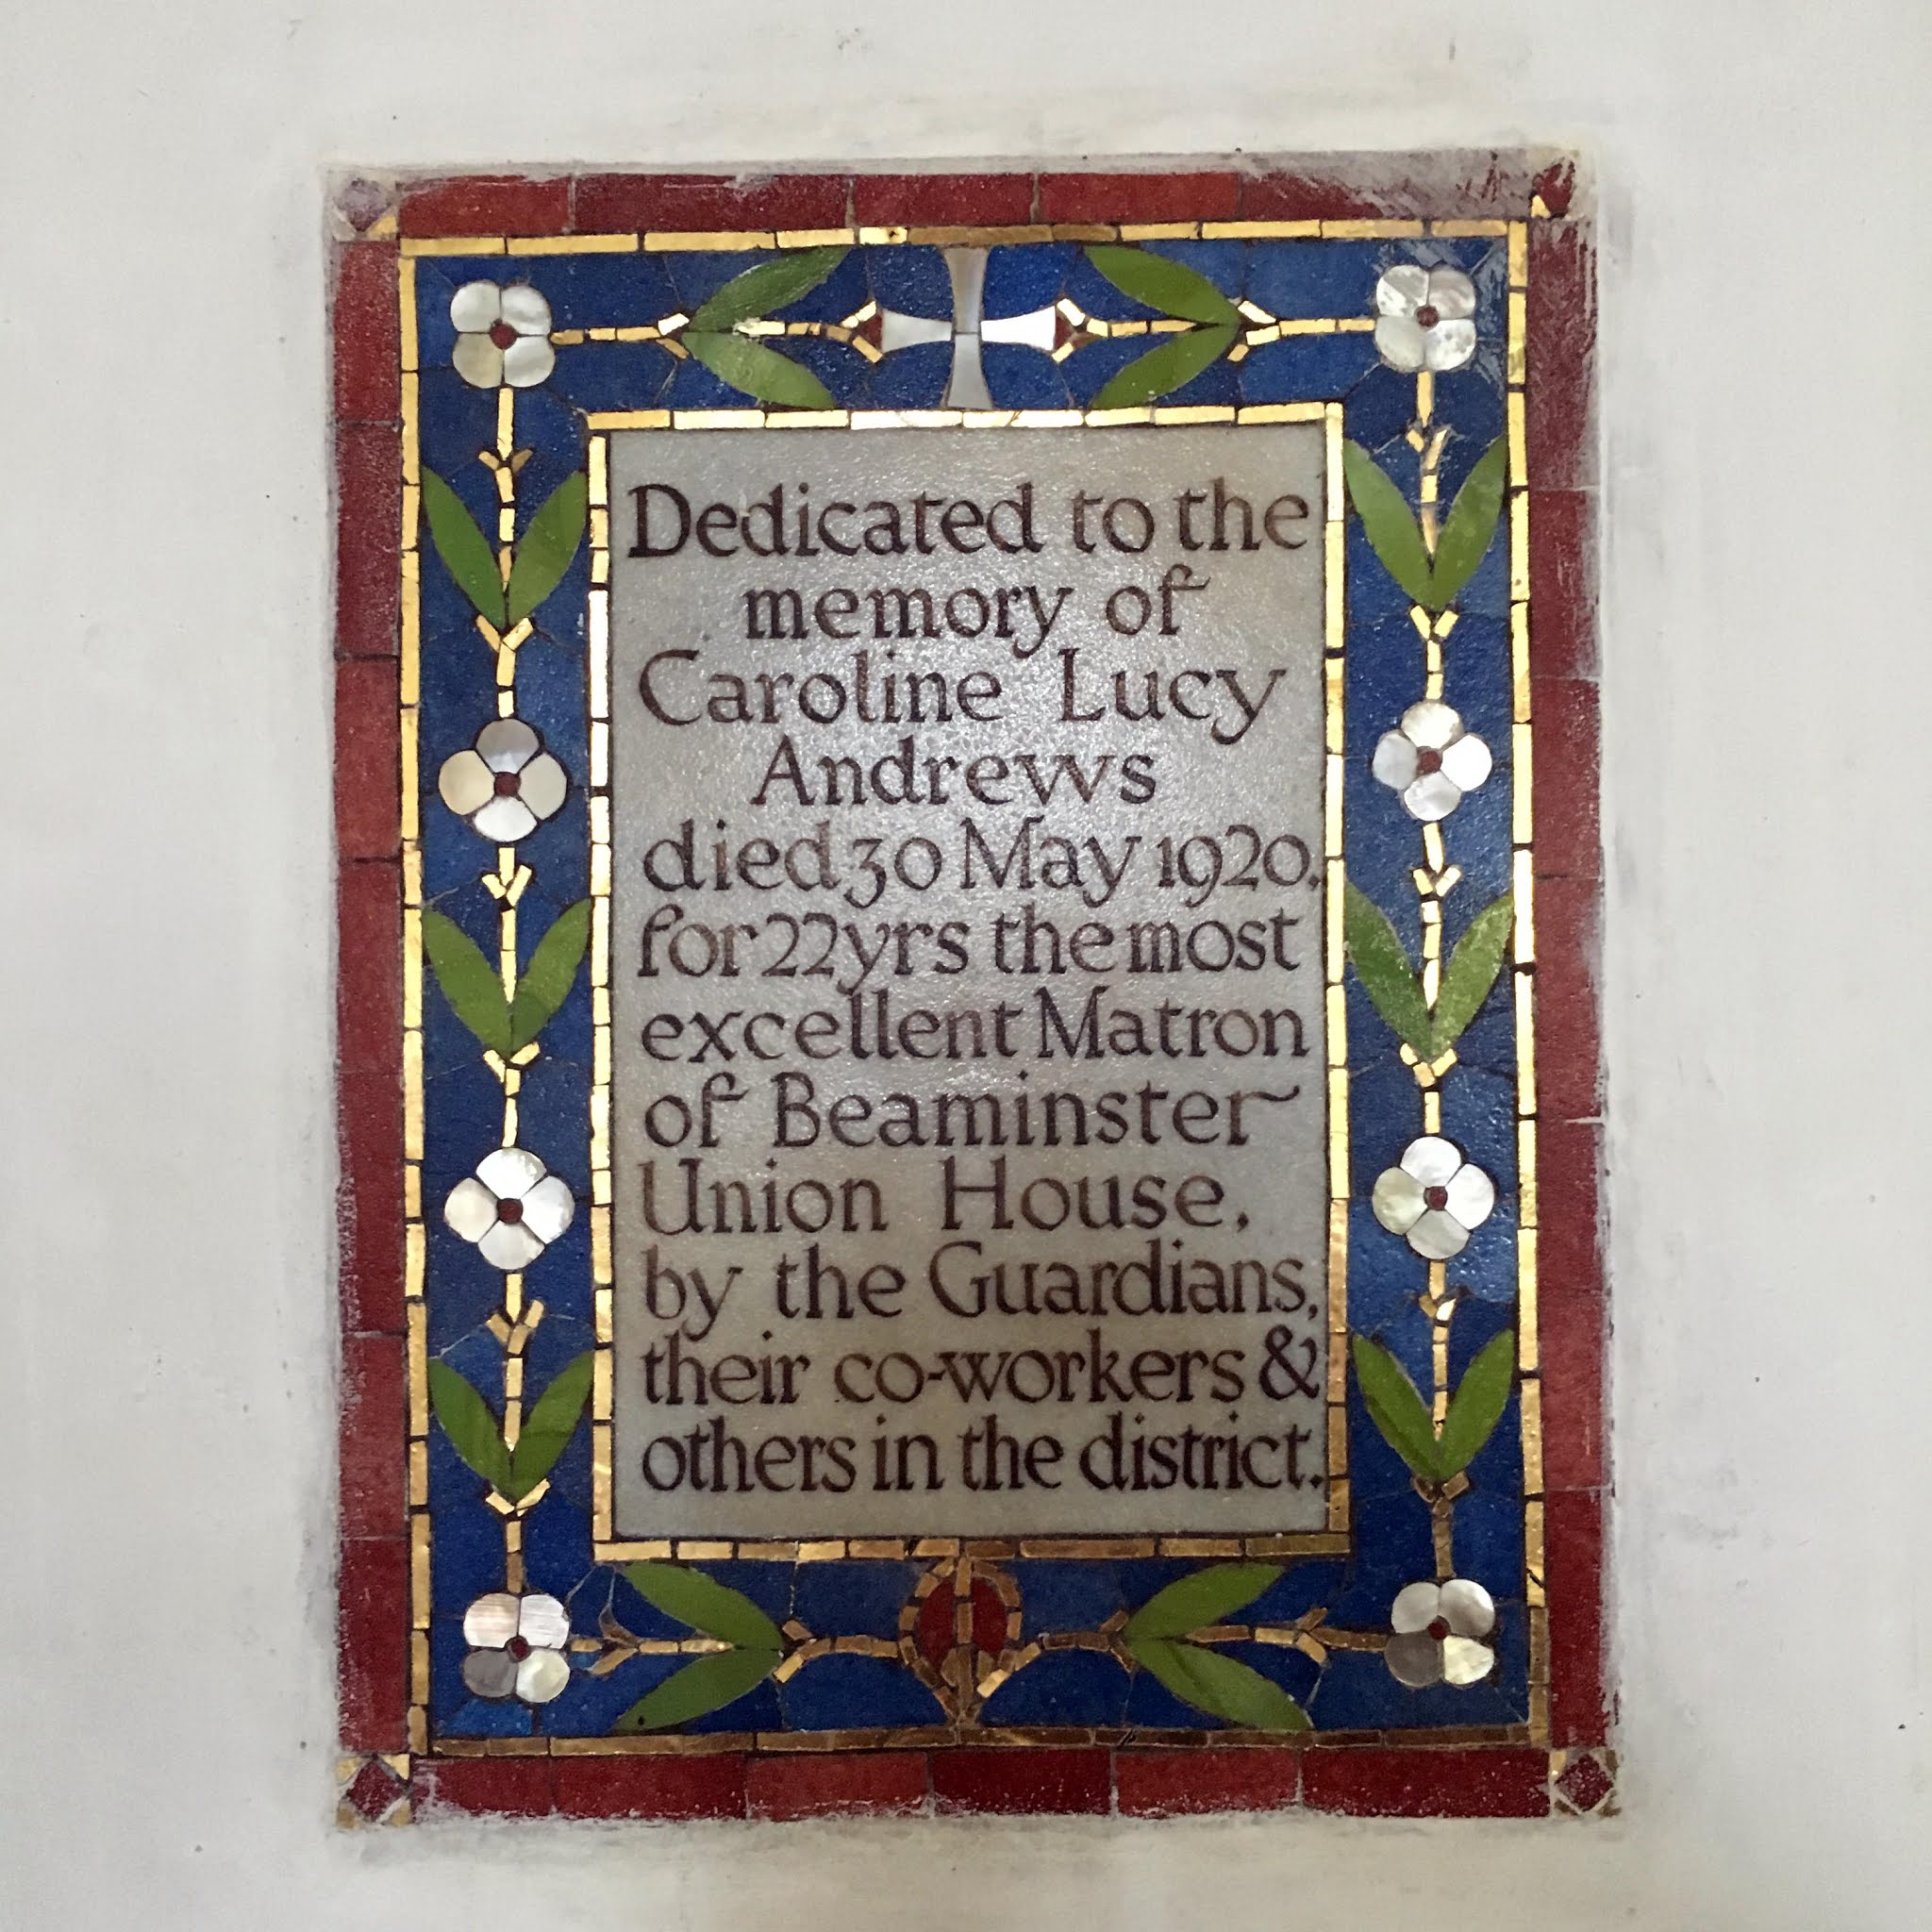 Dedicated to the
memory of
Caroline Lucy
Andrews
died 30 May 1920.
for 22 yrs the most
excellent Matron
of Beaminster
Union House,
by the Guardians,
their co-workers &
others in the district.